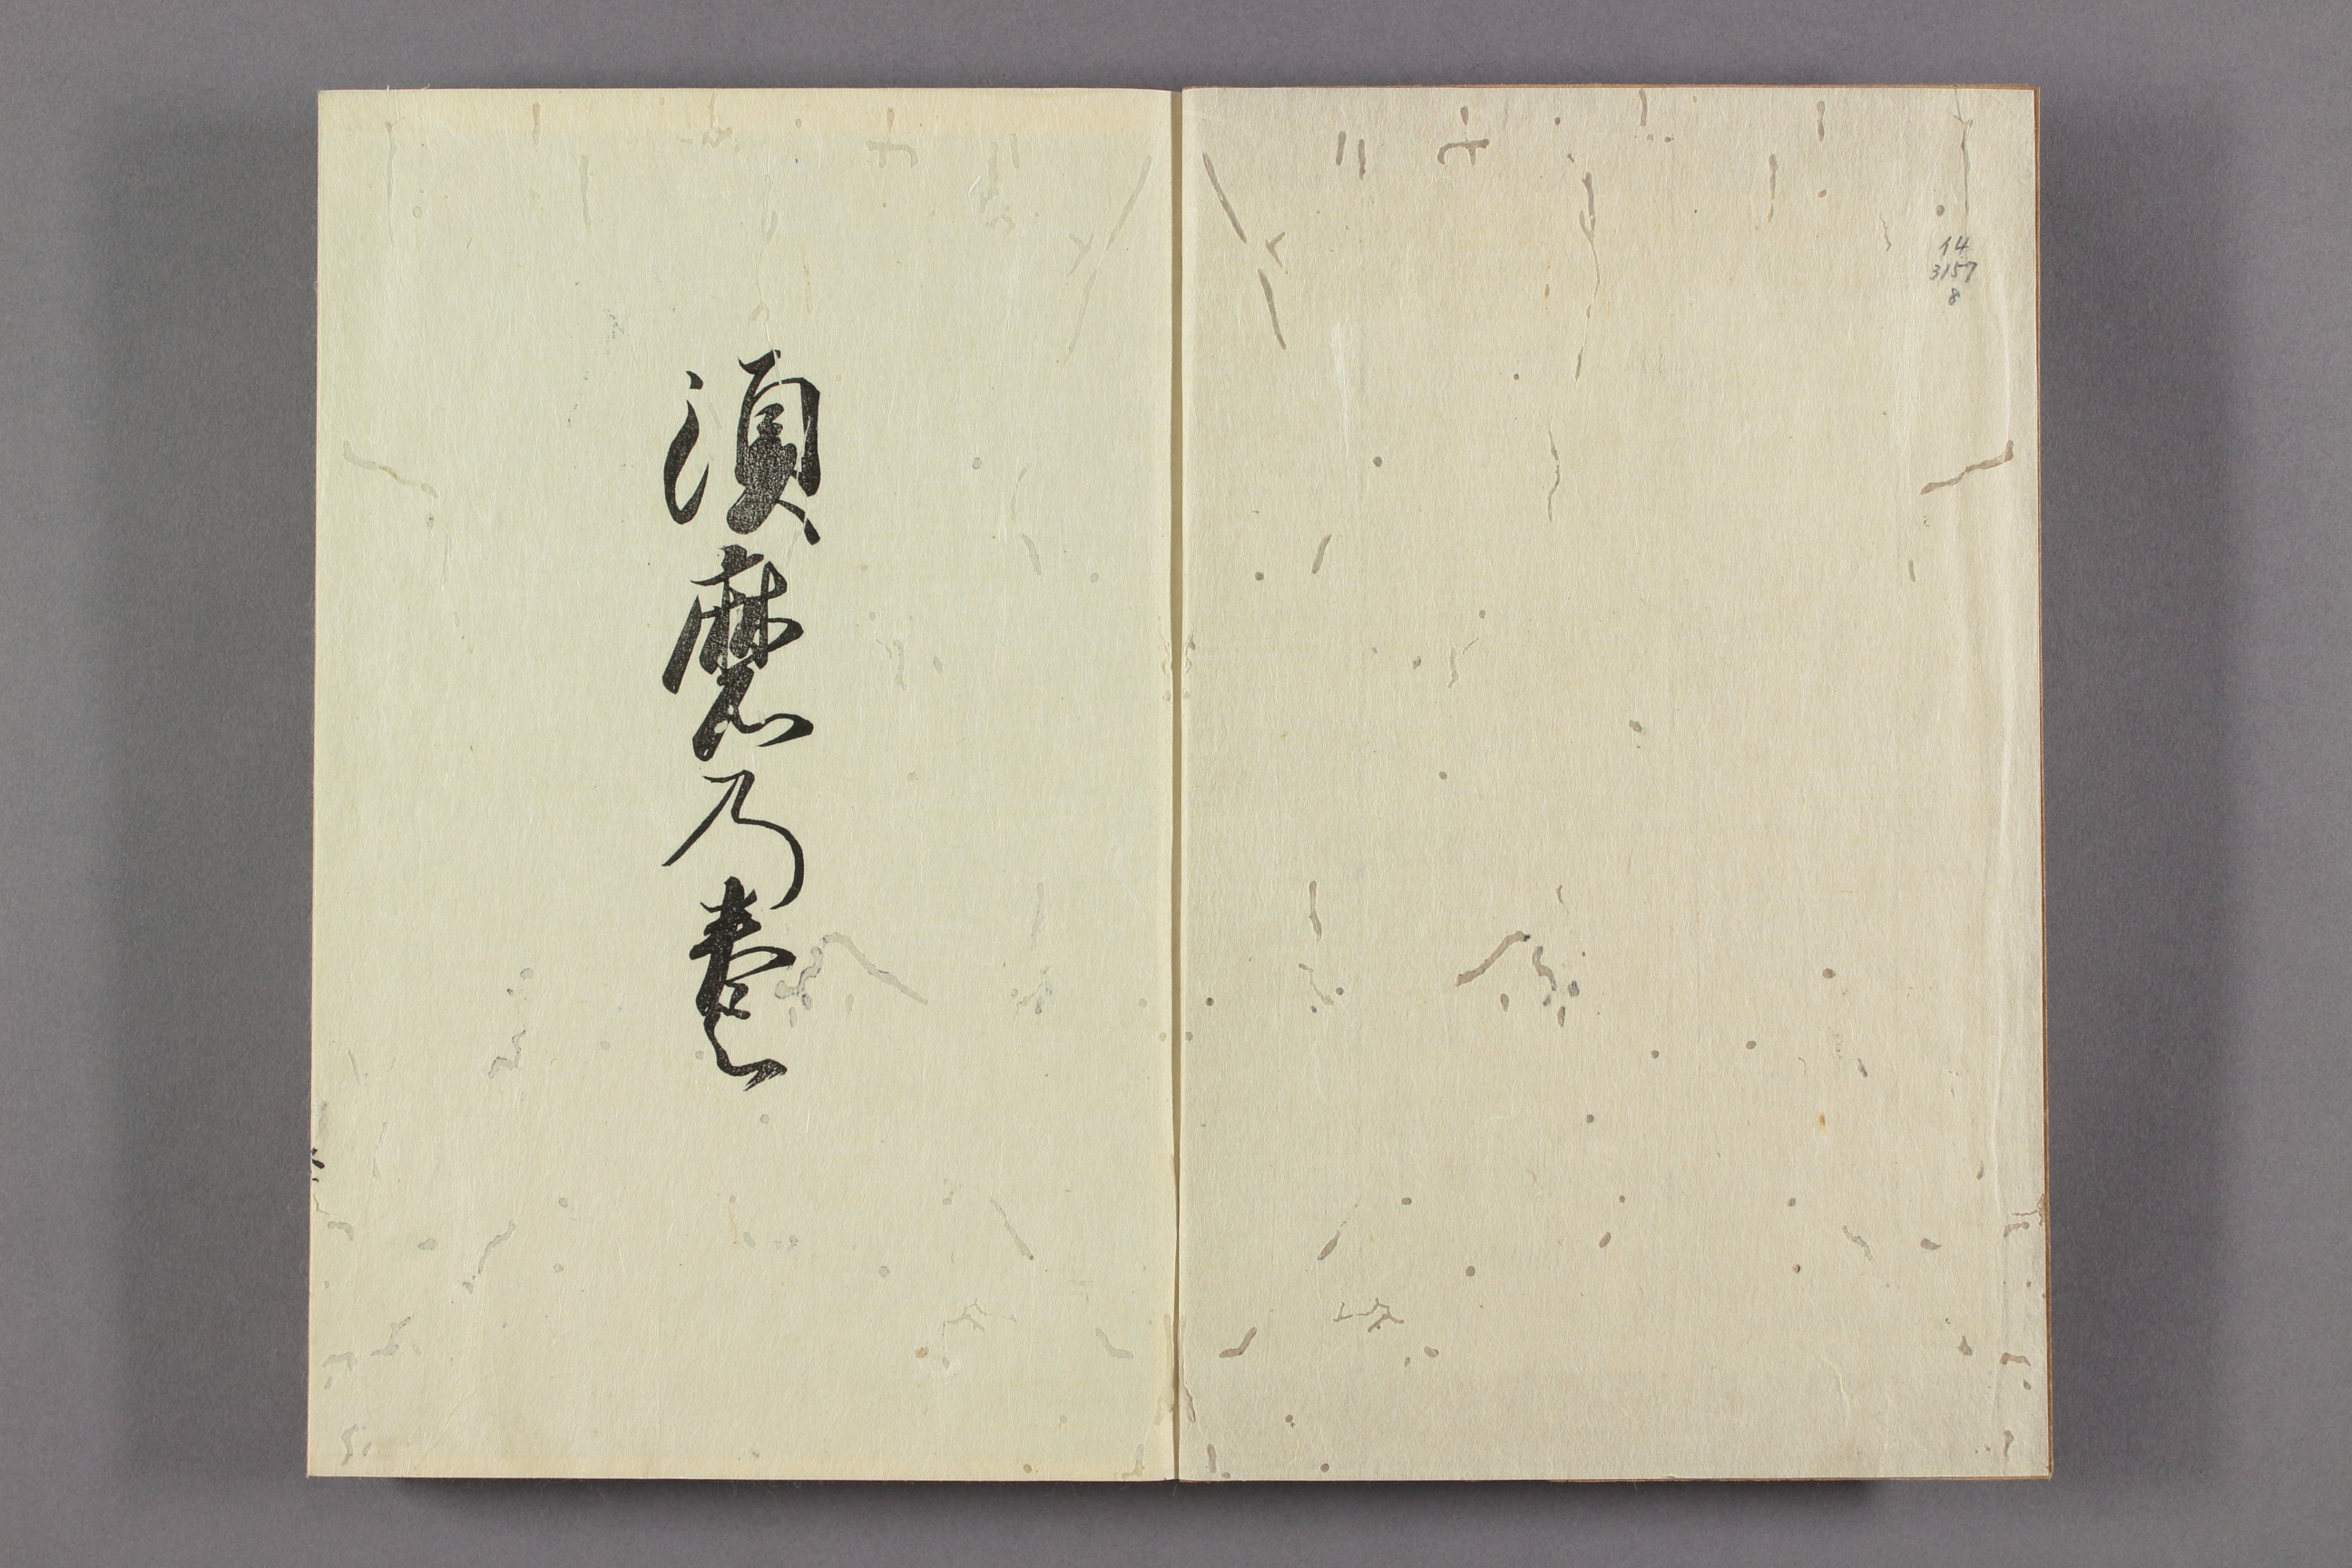 14
3157
8
須磨乃巻